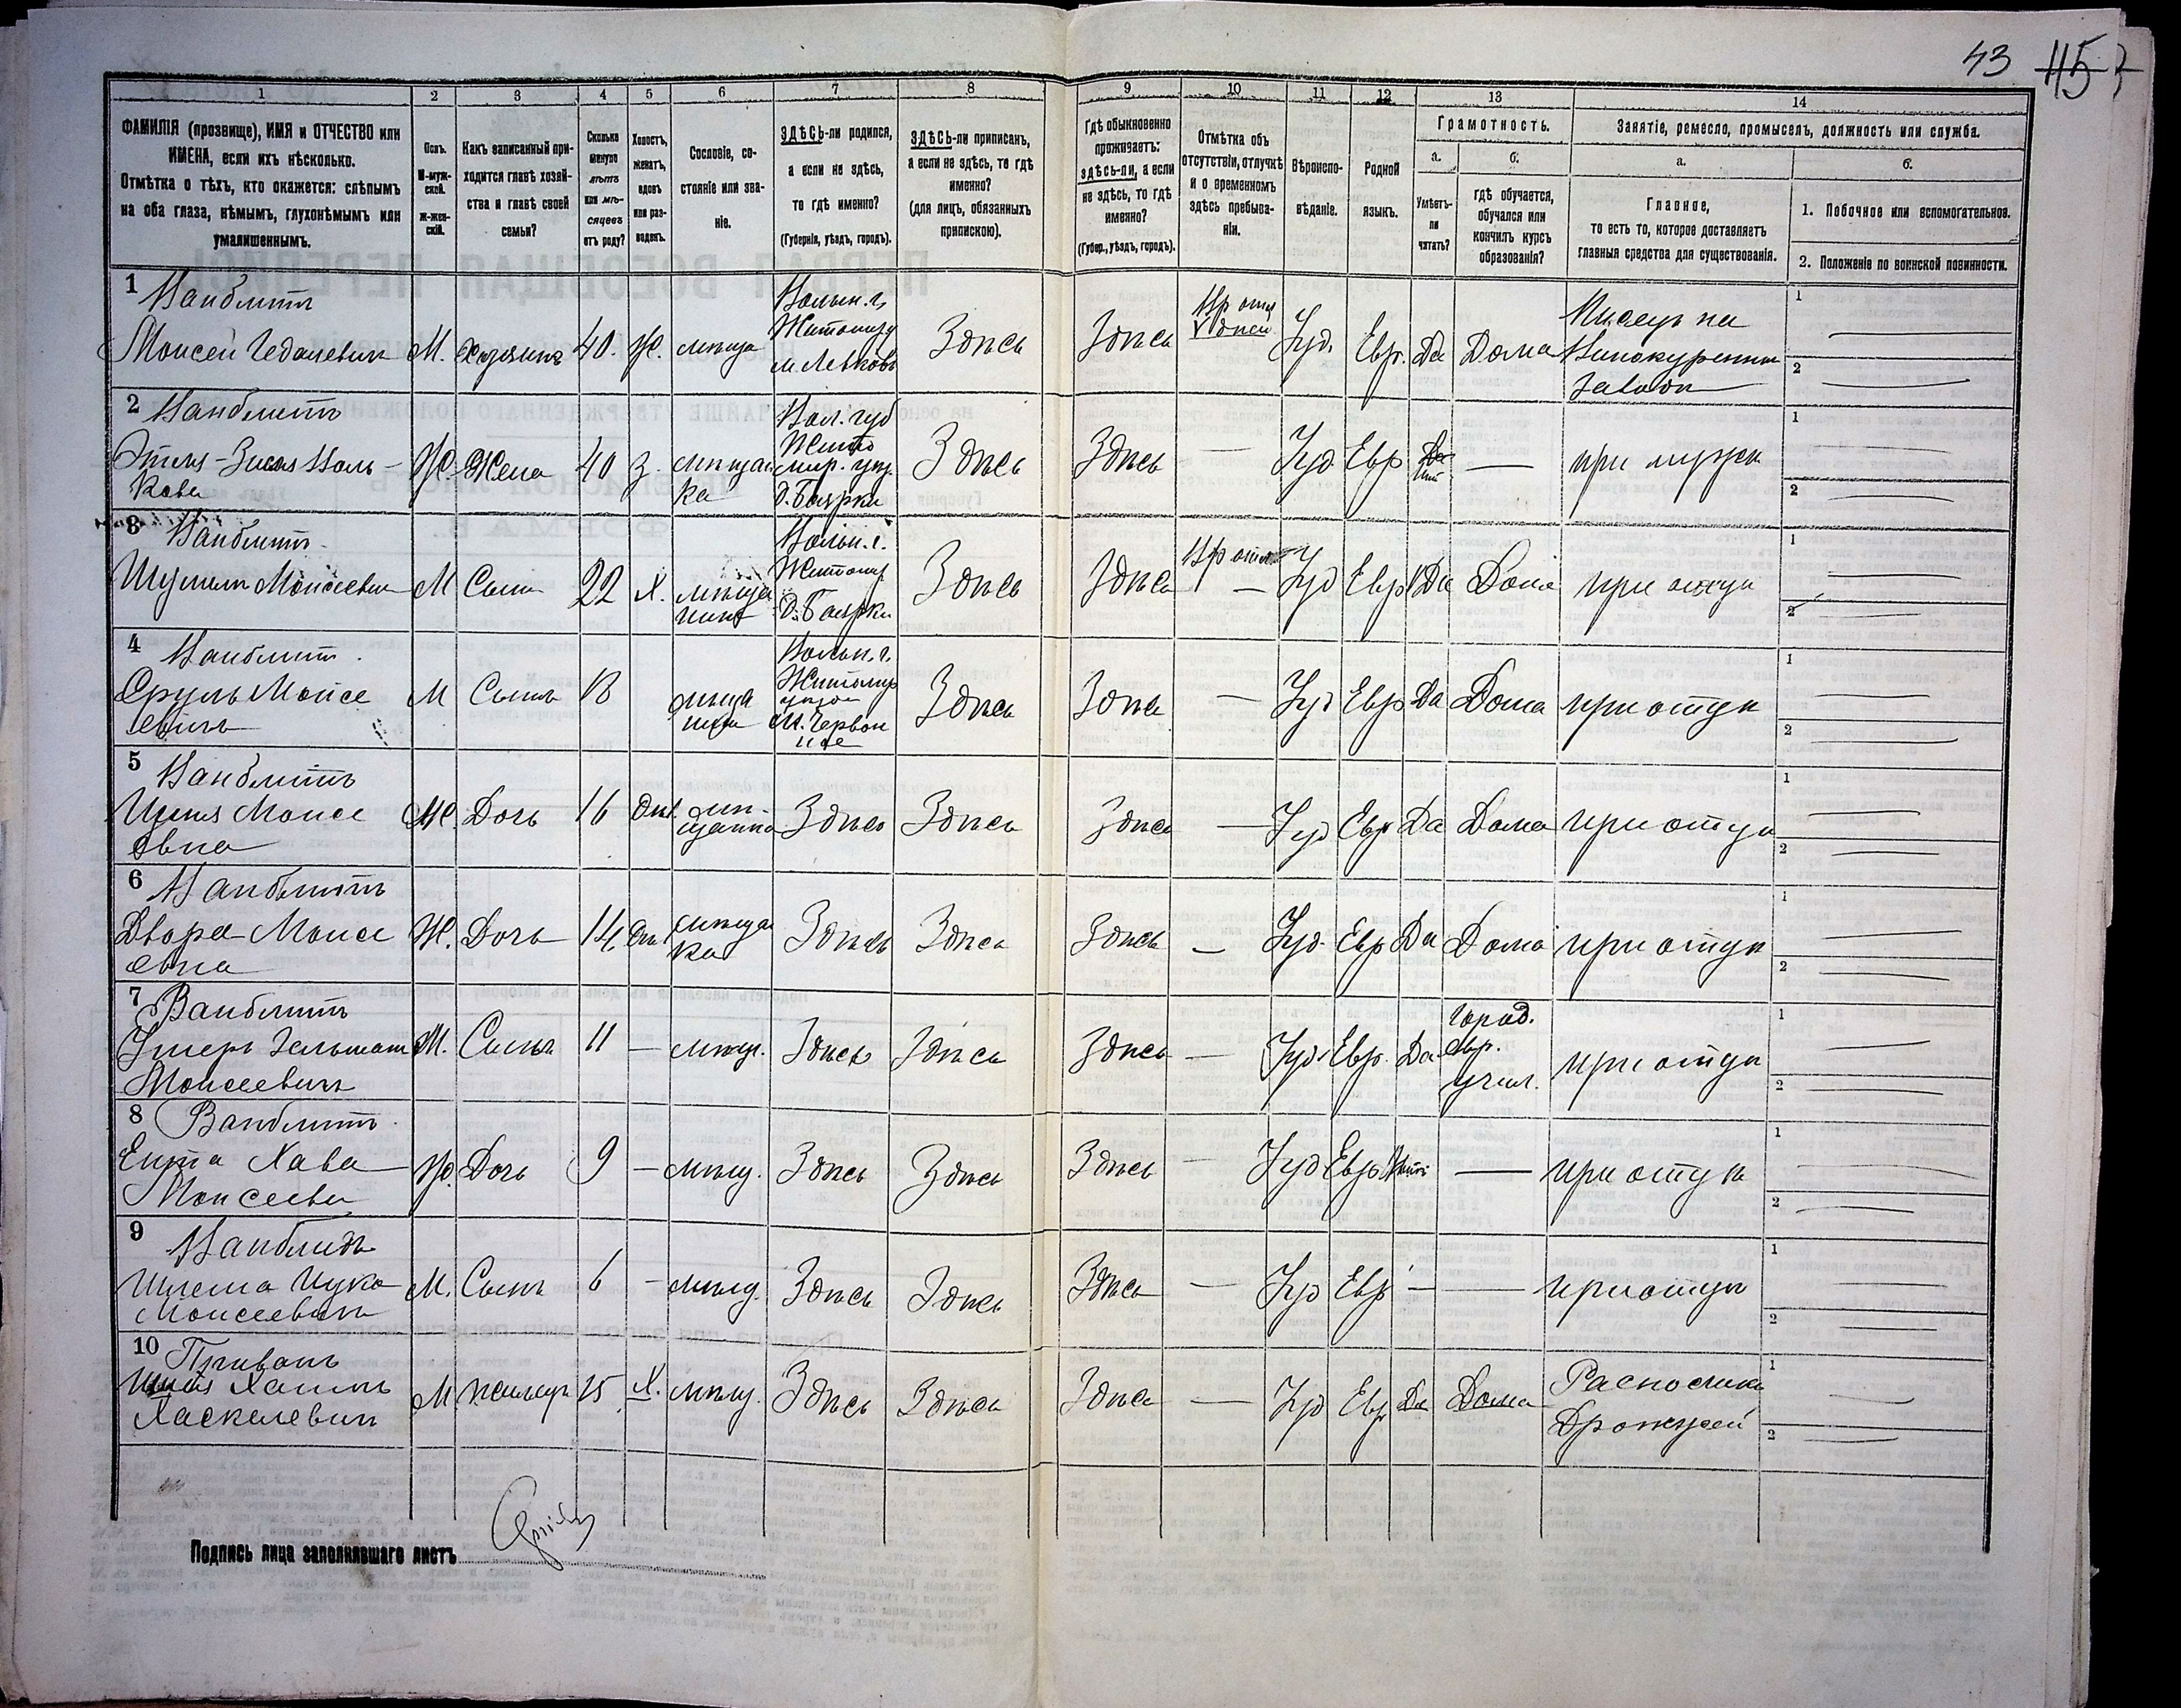 43 115
1 2 3 4 5 6 7 8 9 10 11 12 13 14
ФАМИЛІЯ (прозвище), ИМЯ и ОТЧЕСТВО или
ИМЕНА, если ихъ нѣсколько.
Отмѣтка о тѣхъ, кто окажется: слѣпымъ
на оба глаза, нѣмымъ, глухонѣмымъ или
умалишеннымъ.
Полъ.
М-муж-
ской.
Ж-жен-
скій.
Какъ записанный при-
ходится главѣ хозяй-
ства и главѣ своей
семьи?
Сколько
минуло
лѣтъ
или мѣ-
сяцевъ
отъ роду?
Холостъ,
женатъ,
вдовъ
или раз-
веденъ.
Сословіе, со-
стояніе или зва-
ніе.
ЗДѢСЬ-ли родился,
а если не здѣсь,
то гдѣ именно?
(Губернія, уѣздъ, городъ).
ЗДѢСЬ-ли приписанъ,
а если не здѣсь, то гдѣ
именно?
(для лицъ, обязанныхъ
припискою).
Гдѣ обыкновенно
проживаетъ:
здѣсь-ли, а если
не здѣсь, то гдѣ
именно?
(Губер., уѣздъ, городъ).
Отмѣтка объ
отсутствіи, отлучкѣ
и о временномъ
здѣсь пребыва-
ніи.
Вѣроиспо-
вѣданіе.
Родной
языкъ.
Грамотность.
а.
Умѣетъ-
ли
читать?
б.
гдѣ обучается,
обучался или
кончилъ курсъ
образованія?
Занятіе, ремесло, промыселъ, должность или служба.
а.
Главное,
то есть то, которое доставляетъ
главныя средства для существованія.
б.
1. Побочное или вспомогательное.
2. Положеніе по воинской повинности.
1 Ванблитъ
Моисей Гедалевич М. хозяинъ 40. Ж.
Волын. г. Житомир м. Левковъ
Здѣсь Здѣсь Іуд. Евр. Да Дома
Писецъ на
Винокуренном
заводѣ
1
2
2 Ванблитъ
Ж. Жена 40 З. мѣщан
ка
Вол. губ
Жито
мир. уѣз.
д. Баярка
Здѣсь Здѣсь — Іуд Евр — при мужѣ
1
2
3 Ванблитъ
Моисеевич М Сынъ 22 Х. мѣща
нинъ
Волын. г.
Житомир
д. Баярка
Здѣсь Здѣсь — Іуд Евр Да Дома при отцѣ
1
2
4 Ванблит
Сруль Моисе
евичъ
М Сынъ 18 мѣща
нин
Волын. г.
Житомир
уѣзда
м. Червон
ное
Здѣсь Здѣсь — Іуд Евр Да Дома при отцѣ
1
2
5 Ванблитъ
Моисе
евна
Ж. Дочь 16 дѣв. мѣ-
щанка
Здѣсь Здѣсь Здѣсь — Іуд Евр Да Дома при отцѣ
1
2
6 Ванблитъ
Двора Моисе
евна
Ж. Дочь 14 дѣв мѣщан
ка
Здѣсь Здѣсь Здѣсь — Іуд. Евр Да Дома при отцѣ
1
2
7 Ванблитъ
Моисеевичъ
М. Сынъ 11 — мѣщ. Здѣсь Здѣсь Здѣсь — Іуд. Евр. Да
Город.
евр.
учил.
при отцѣ
1
2
8 Ванблитъ
Ента Хава
Моисеевн
Ж. Дочь 9 — мѣщ. Здѣсь Здѣсь Здѣсь — Іуд Евр — при отцѣ
1
2
9 Ванблидъ
Шлема Ицко
Моисеевичъ
М. Сынъ 6 — мѣщ. Здѣсь Здѣсь Здѣсь — Іуд Евр — — при отцѣ
1
2
10
Хаимъ
Хаскелевич
М. жилецъ 25 Х. мѣщ. Здѣсь Здѣсь Здѣсь — Іуд Евр Да Дома
Разносчикъ
Дрожжей
1
2
Подпись лица заполнявшаго листъ